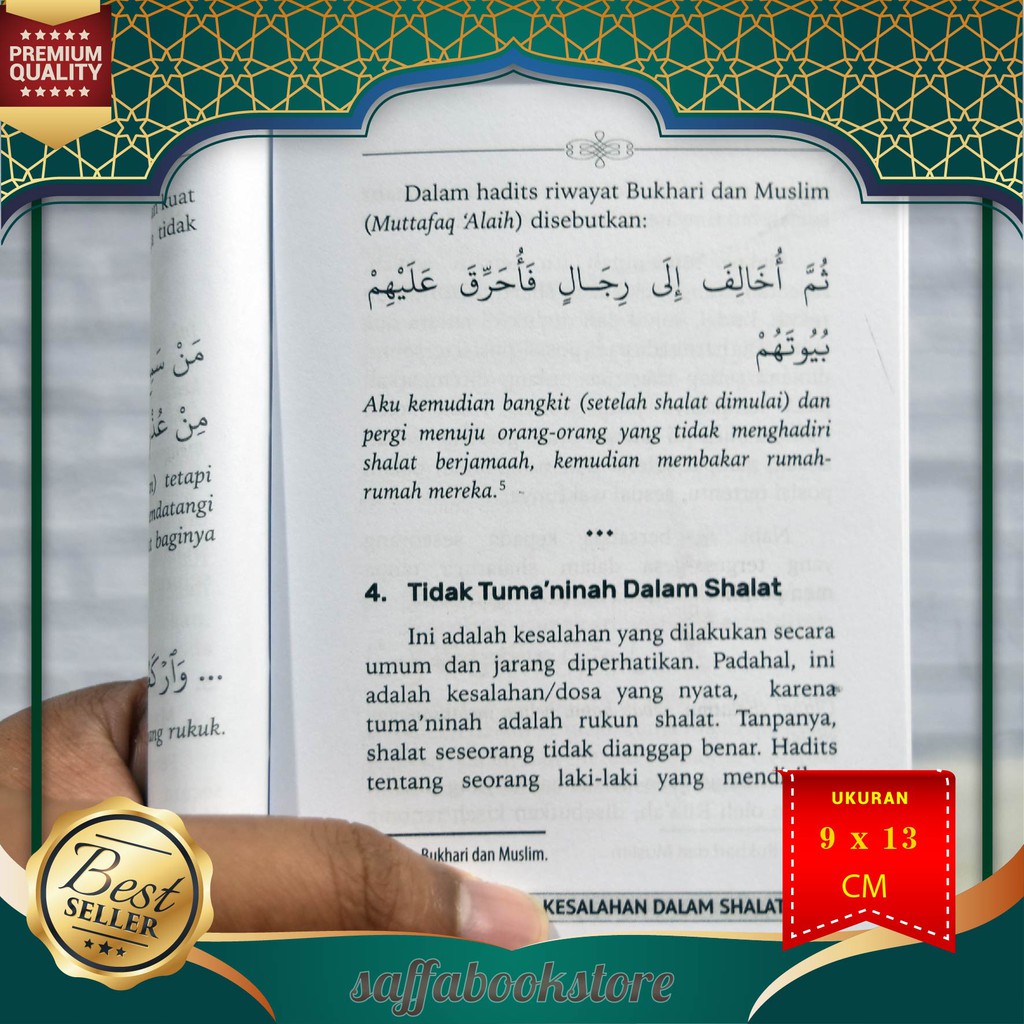 PREMIUM
QUALITY
kuat
tidak
مَنْ
مِنْ
tetapi
baginya
rukuk.
Dalam hadits riwayat Bukhari dan Muslim
(Muttafaq ‘Alaih) disebutkan:
ثُمَّ أُخَالِفَ إِلَى رِجَالٍ فَأُحَرِّقَ عَلَيْهِمْ
بُيُوتَهُمْ
Aku kemudian bangkit (setelah shalat dimulai) dan
pergi menuju orang-orang yang tidak menghadiri
shalat berjamaah, kemudian membakar rumah-
rumah mereka.⁵
•••
4. Tidak Tuma’ninah Dalam Shalat
Ini adalah kesalahan yang dilakukan secara
umum dan jarang diperhatikan. Padahal, ini
adalah kesalahan/dosa yang nyata, karena
tuma’ninah adalah rukun shalat. Tanpanya,
shalat seseorang tidak dianggap benar. Hadits
tentang seorang laki-laki yang
Bukhari dan Muslim.
KESALAHAN DALAM SHALAT
UKURAN
9 x 13
CM
Best
SELLER
saffabookstore